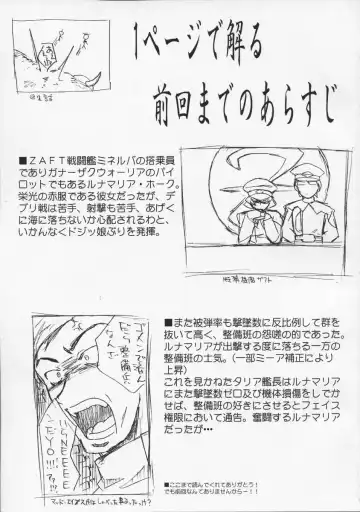 1ページで解る
前回までのあらすじ
■ZAFT戦闘艦ミネルバの搭乗員
でありガナーザクウォーリアのパイ
ロットでもあるルナマリア・ホーク。
栄光の赤服である彼女だったが、デ
ブリ戦は苦手、射撃も苦手、あげく
に海に落ちないか心配されるわと、
いかんなくドジッ娘ぶりを発揮。
■また被弾率も撃墜数に反比例して群を
抜いて高く、整備班の怨嗟の的であった。
ルナマリアが出撃する度に落ちる一方の
整備班の士気。（一部ミーア補正により
上昇）
これを見かねたタリア艦長はルナマリア
にまた撃墜数ゼロ及び機体損傷をしでか
せば、整備班の好きにさせるとフェイス
権限において通告。奮闘するルナマリア
だったが…
■ここまで読んでくれてありがとう！
でも前回なんてありませんから－！！